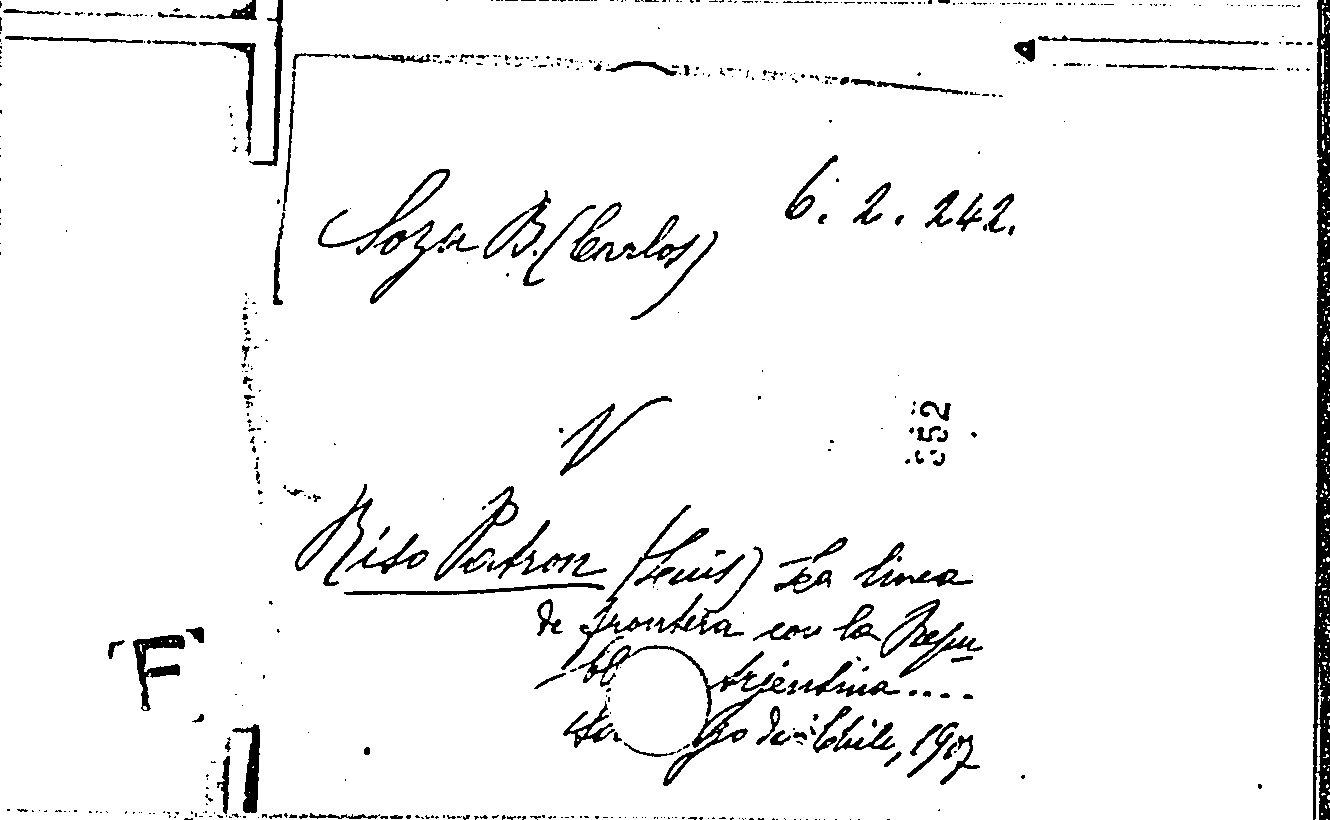 Soza B. (Carlos) 6. 2. 242.
V
352
Riso Patron (Luis) La linea
de frontera con la Repu
bl Argentina....
San go de Chile, 1907
F